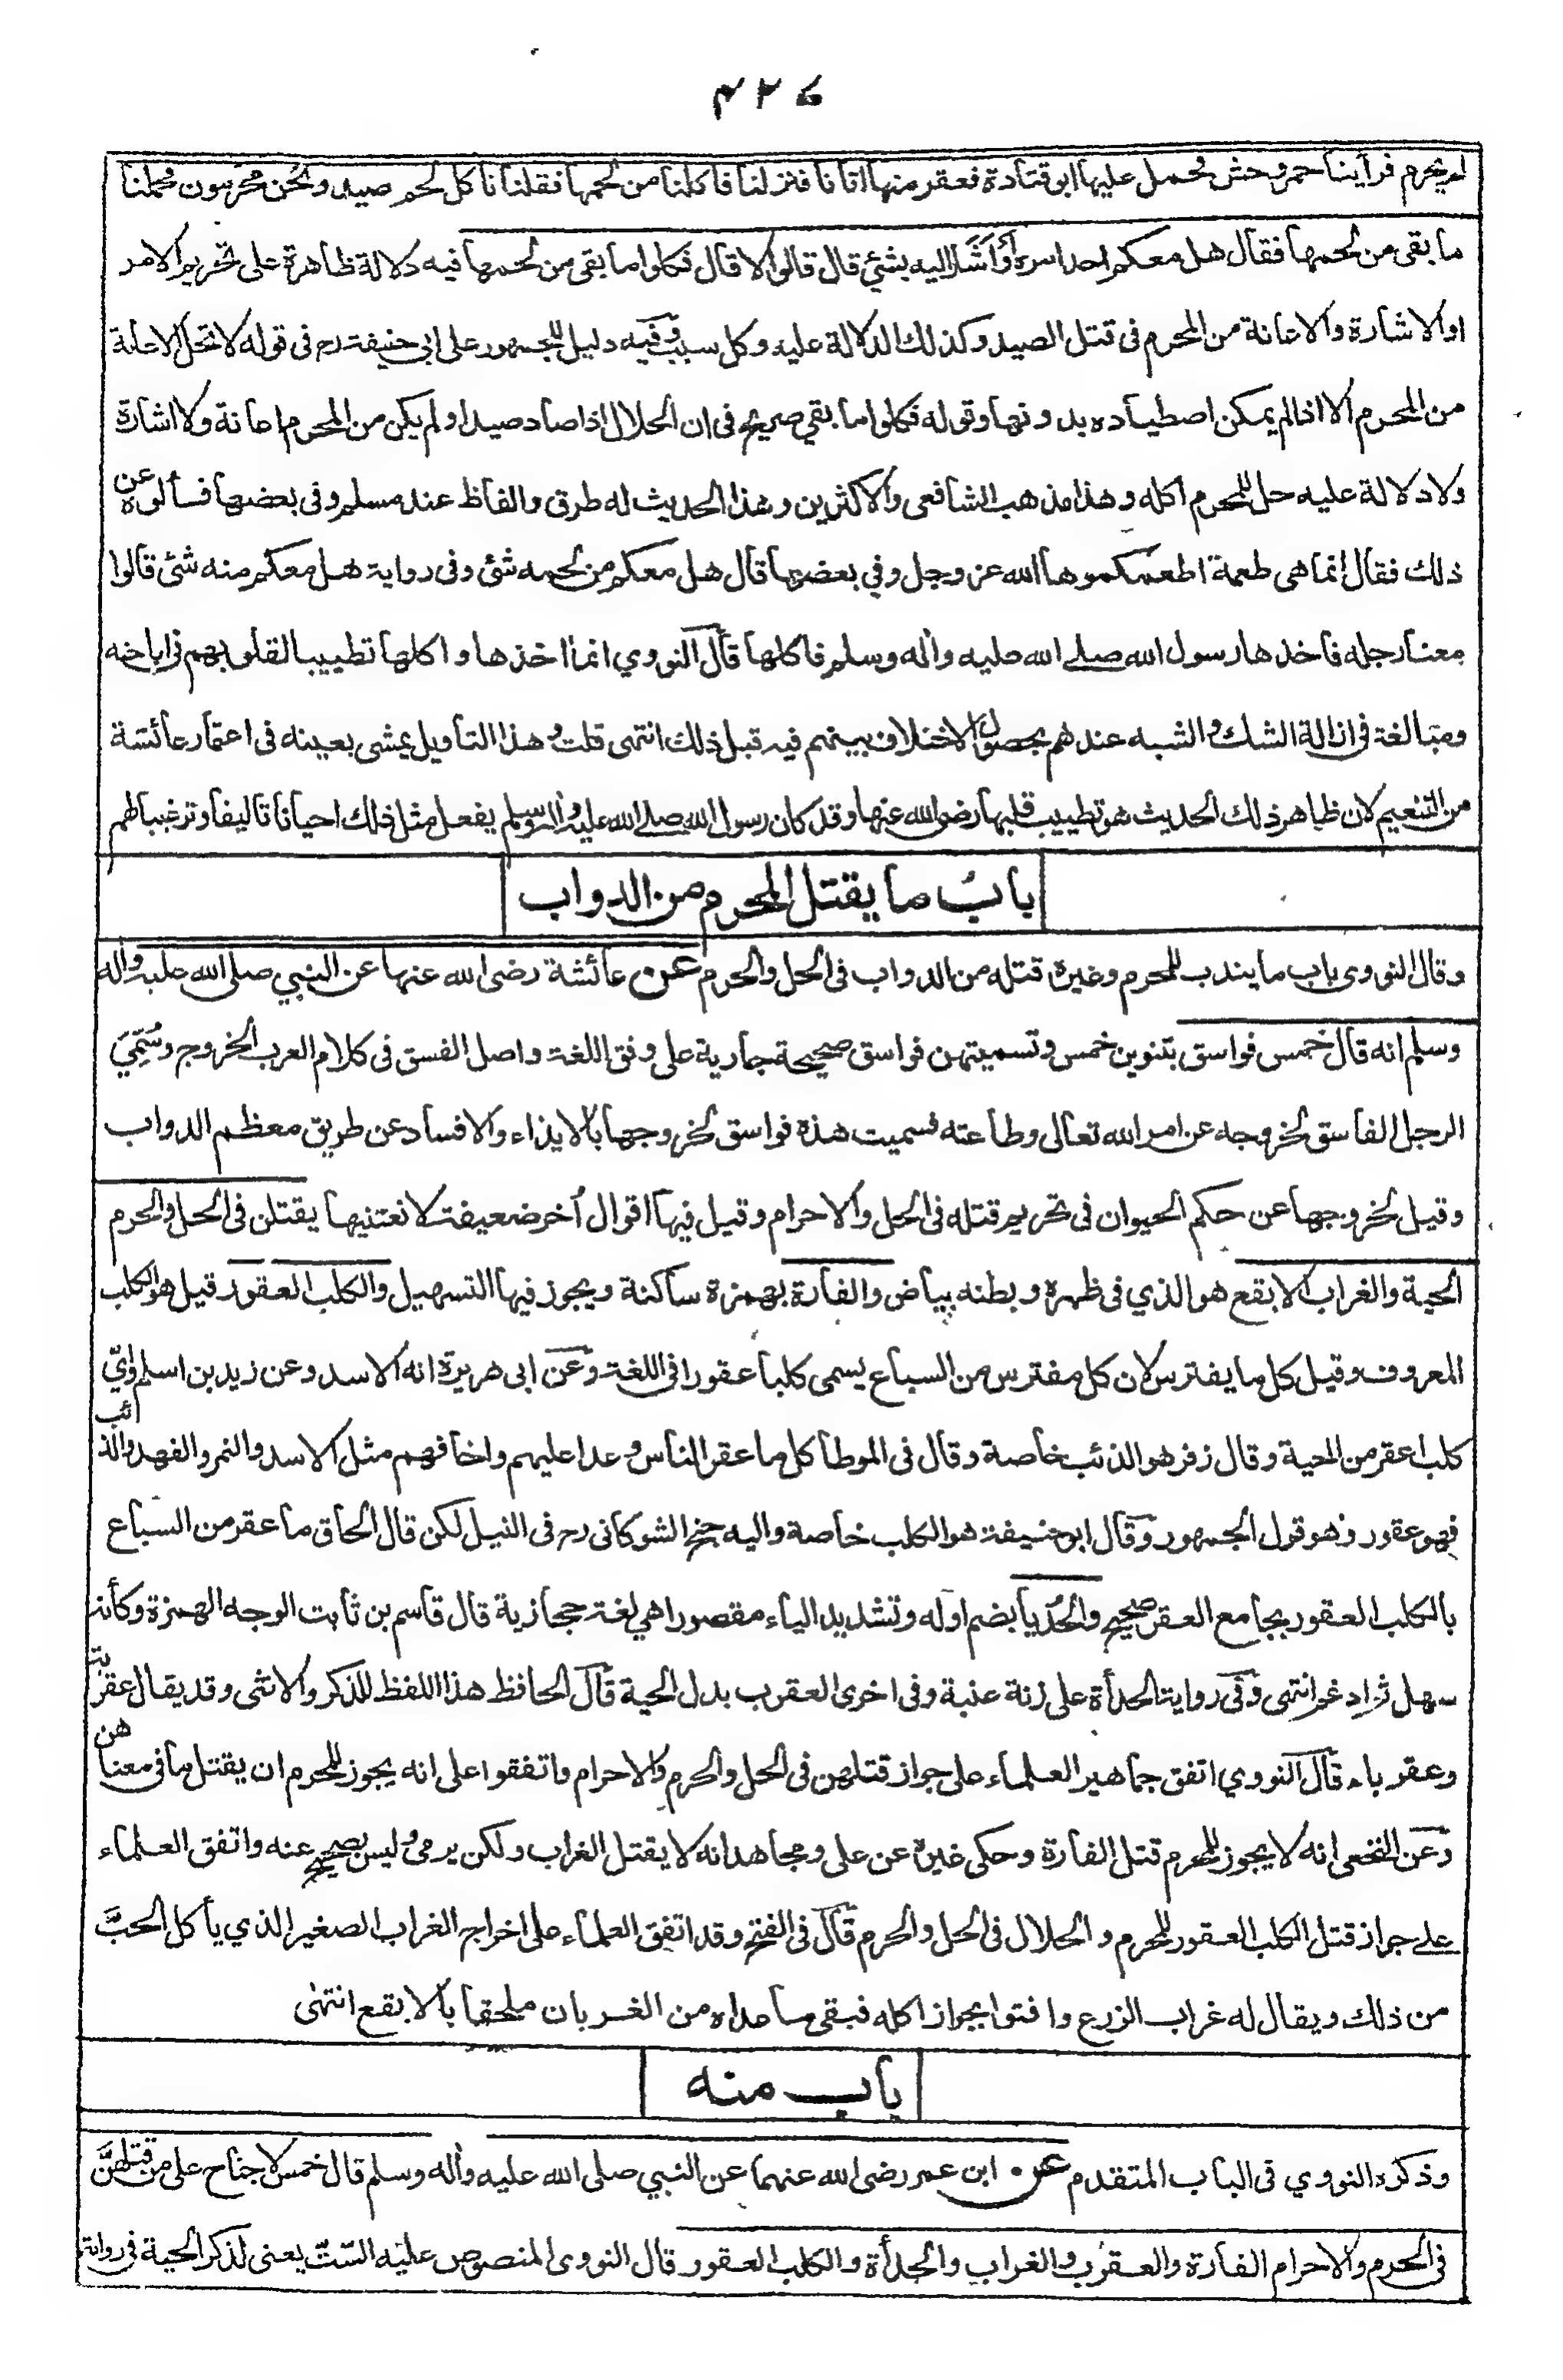 ٤٢٦
لم يحرم فرأينا حمر وحش فحمل عليها ابو قتادة فعقر منها اتانا فنزلنا فاكلنا من لحمها فقلنا نأكل لحم صيد ونحن محرمون فحملنا
ما بقى من لحمها فقال هل معكم احد امره أو أشار اليه بشئ قال قالوا لا قال فكلوا ما بقى من لحمها فيه دلالة ظاهرة على تحريم الامر
او الاشارة والاعانة من المحرم فى قتل الصيد وكذلك الدلالة عليه وكل سبب وفيه دليل للجمهور على ابى حنيفة رح فى قوله لا تحل الاعانة
من المحرم الا اذا لم يمكن اصطياده بدونها وقوله فكلوا ما بقي صريح فى ان الحلال اذا صاد صيدا ولم يكن من المحرم اعانة ولا اشارة
ولا دلالة عليه حل للمحرم اكله وهذا مذهب الشافعى والاكثرين وهذا الحديث له طرق والفاظ عند مسلم وفى بعضها فسألوه عن
ذلك فقال إنما هى طعمة اطعمكموها الله عز وجل وفي بعضها قال هل معكم من لحمه شئ وفى رواية هل معكم منه شئ قالوا
معنا رجله فاخذها رسول الله صلے الله عليه واله وسلم فاكلها قال النووي انما اخذها واكلها تطييبا لقلوبهم فى اباحته
ومبالغة فى ازالة الشك والشبه عندهم بحصول الاختلاف بينهم فيه قبل ذلك انتهى قلت وهذا التأويل يمشى بعينه فى اعتمار عائشة
من التنعيم لان ظاهر ذلك الحديث هو تطييب قلبها رضى الله عنها وقد كان رسول الله صلے الله عليه واله وسلم يفعل مثل ذلك احيانا تاليفا وترغيبا لهم
باب ما يقتل المحرم من الدواب
وقال النووى باب ما يندب للمحرم وغيره قتله من الدواب فى الحل والحرم عن عائشة رضى الله عنها عن النبي صلى الله عليه واله
وسلم انه قال خمس فواسق بتنوين خمس وتسميتهن فواسق صحيحة جارية على وفق اللغة واصل الفسق فى كلام العرب الخروج وسُمِّيَ
الرجل الفاسق لخروجه عن امر الله تعالى وطاعته فسميت هذه فواسق لخروجها بالايذاء والافساد عن طريق معظم الدواب
وقيل لخروجها عن حكم الحيوان فى تحريم قتله فى الحل والاحرام وقيل فيها اقوال أخر ضعيفة لا نعتنيها يقتلن فى الحل والحرم
الحية والغراب الابقع هو الذي فى ظهره وبطنه بياض والفأرة بهمزة ساكنة ويجوز فيها التسهيل والكلب العقور قيل هو الكلب
المعروف وقيل كل ما يفترس لان كل مفترس من السباع يسمى كلبا عقورا فى اللغة وعن ابى هريرة انه الاسد وعن زيد بن اسلم وايّ
كلب اعقر من الحية وقال زفر هو الذئب خاصة وقال فى الموطأ كل ما عقر الناس وعدا عليهم واخافهم مثل الاسد والنمر والفهد والذئب
فهو عقور وهو قول الجمهور وقال ابو حنيفة هو الكلب خاصة واليه جنح الشوكانى رح فى النيل لكن قال الحاق ما عقر من السباع
بالكلب العقور بجامع العقر صحيح والحُدَيّا بضم اوله وتشديد الياء مقصورا هي لغة حجازية قال قاسم بن ثابت الوجه الهمزة وكأنه
سهل ثم ادغم انتهى وفى رواية الحدأة على زنة عنبة وفى اخرى العقرب بدل الحية قال الحافظ هذا اللفظ للذكر والانثى وقد يقال عقربة
وعقرباء قال النووي اتفق جماهير العلماء على جواز قتلهن فى الحل والحرم والاحرام واتفقوا على انه يجوز للمحرم ان يقتل ما فى معناهن
وعن النخعى انه لا يجوز للمحرم قتل الفارة وحكى غيره عن على ومجاهد انه لا يقتل الغراب ولكن يرمى وليس بصحيح عنه واتفق العلماء
علے جواز قتل الكلب العقور للمحرم والحلال فى الحل والحرم قال فى الفتح وقد اتفق العلماء على اخراج الغراب الصغير الذي يأكل الحبَّ
من ذلك ويقال له غراب الزرع وافتوا بجواز اكله فبقى ما عداه من الغربان ملحقا بالابقع انتهى
باب منه
وذكره النووي فى الباب المتقدم عن ابن عمر رضى الله عنهما عن النبي صلى الله عليه واله وسلم قال خمس لا جناح على من قتلهنَّ
فى الحرم والاحرام الفارة والعقرب والغراب والحدأة والكلب العقور قال النووى المنصوص عليه الستّ يعنى لذكر الحية فى رواية